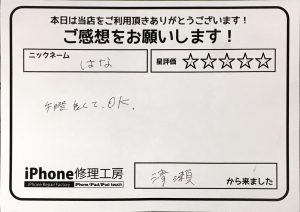 本日は当店をご利用頂きありがとうございます!
ご感想をお願いします!
ニックネーム
はな
星評価 ☆☆☆☆☆
良くて、OK.
iPhone修理工房
iPhone Repair Factory iPhone/iPad/iPod touch
清瀬 から来ました